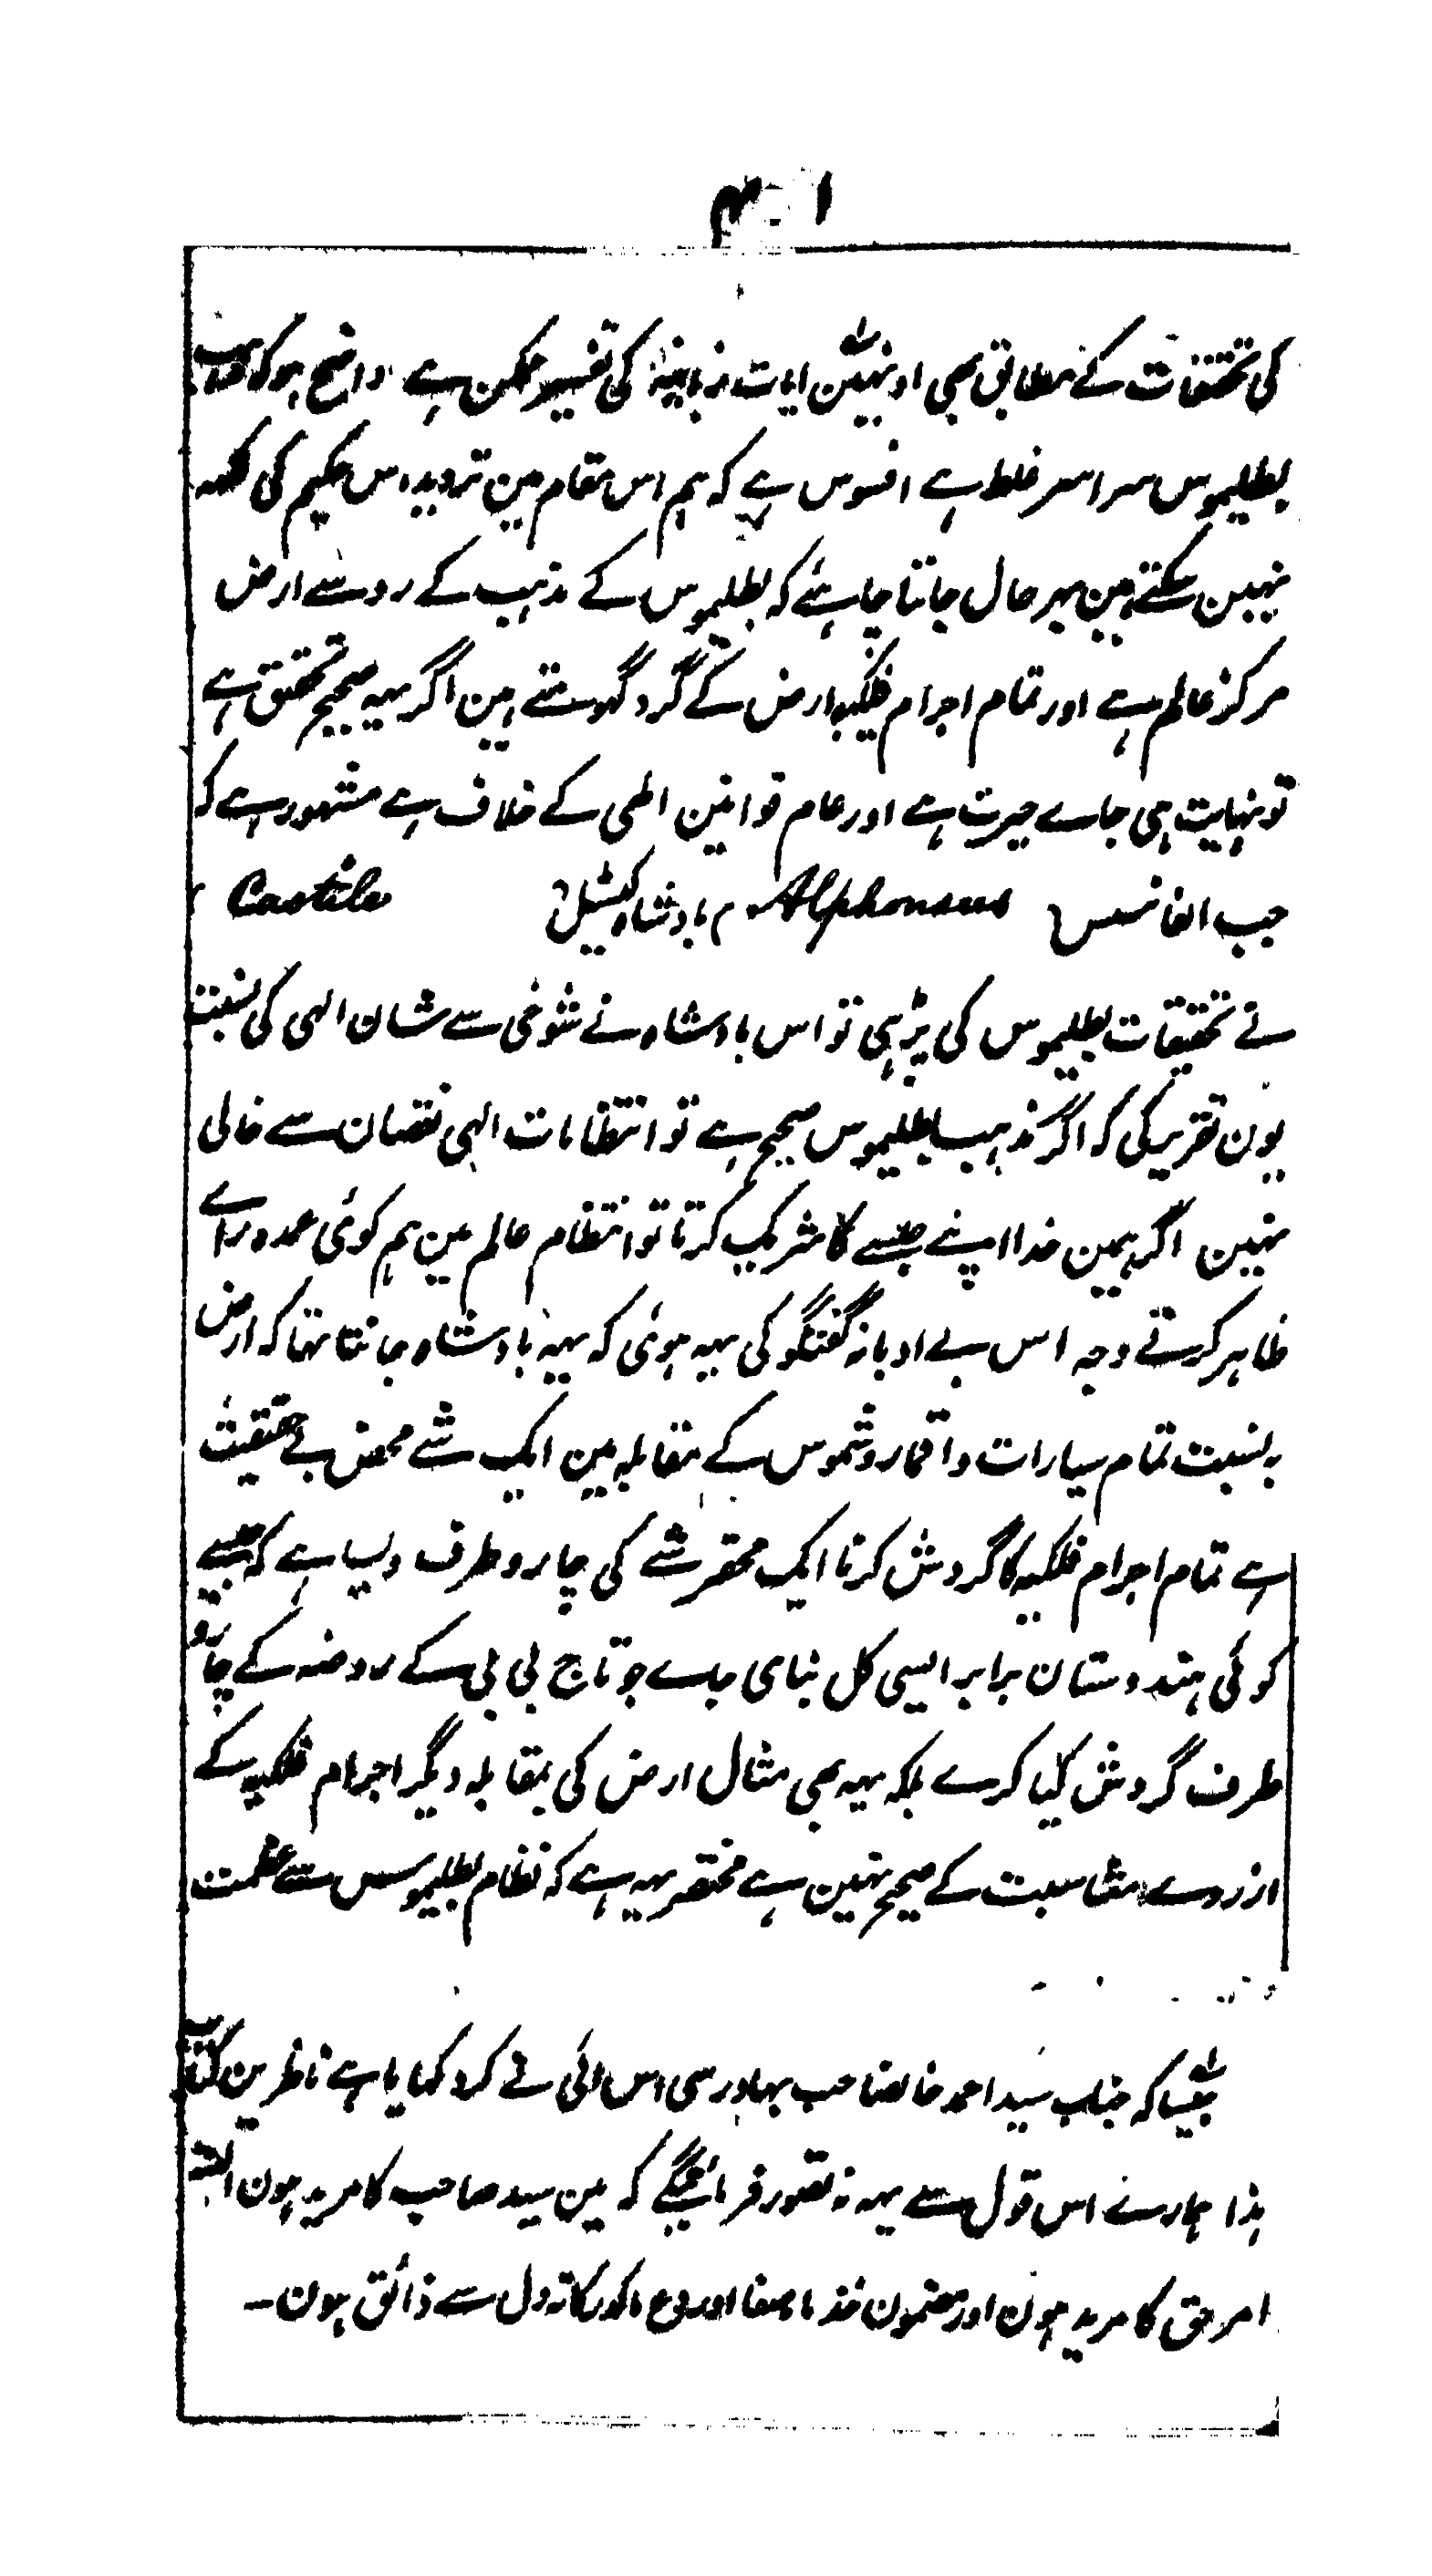 کی تحقیقات کے مطابق بھی اونہین ایات ربانیہ کی تفسیر ممکن ہے واضح ہو کہ مذہب
بطلیموس سراسر غلط ہے افسوس ہے کہ ہم اس مقام مین تردید اس حکیم کی لکھہ
نہین سکتے ہین بہر حال جاننا چاہئے کہ بطلیموس کے مذہب کے رو سے ارض
مرکز عالم ہے اور تمام اجرام فلکیہ ارض کے گرد گھومتے ہین اگر یہہ صحیح تحقیق ہے
تو نہایت ہی جاے حیرت ہے اور عام قوانین الٰہی کے خلاف ہے مشہور ہے کہ
جب الفانسس Alphonsus بادشاہ کسٹیل Castile
نے تحقیقات بطلیموس کی پڑہی تو اس بادشاہ نے شوخی سے شان الہی کی نسبت
یون تقریر کی کہ اگر مذہب بطلیموس صحیح ہے تو انتظامات الہی نقصان سے خالی
نہین اگر ہمین خدا اپنے جلسے کا شریک کرتا تو انتظام عالم مین ہم کوئی عمدہ راے
ظاہر کرتے وجہ اس بے ادبانہ گفتگو کی یہہ ہوئی کہ یہہ بادشاہ جانتا تہا کہ ارض
بہ نسبت تمام سیارات و اقمار و شموس کے مقابلہ مین ایک شے محض بے حقیقت
ہے تمام اجرام فلکیہ کا گردش کرنا ایک محقر شے کی چارو طرف ویسا ہے کہ جیسے
کوئی ہندوستان برابر ایسی کل بنای جاے جو تاج بی بی کے روضہ کے چارو
طرف گردش کیا کرے بلکہ یہہ بھی مثال ارض کی بمقابلہ دیگر اجرام فلکیہ کے
از روے مناسبت کے صحیح نہین ہے مختصر یہہ ہے کہ نظام بطلیموس سے عظمت
جیسا کہ جناب سید احمد خانصاحب بہادر سی اس ائی نے کر دکہایا ہے ناظرین کتاب
ہذا ہمارے اس قول سے یہہ نہ تصور فرمائینگے کہ مین سید صاحب کا مرید ہون البتہ
امر حق کا مرید ہون اور مضمون خذ ما صفا اور دع ماکدر کا تہ دل سے ذائق ہون۔